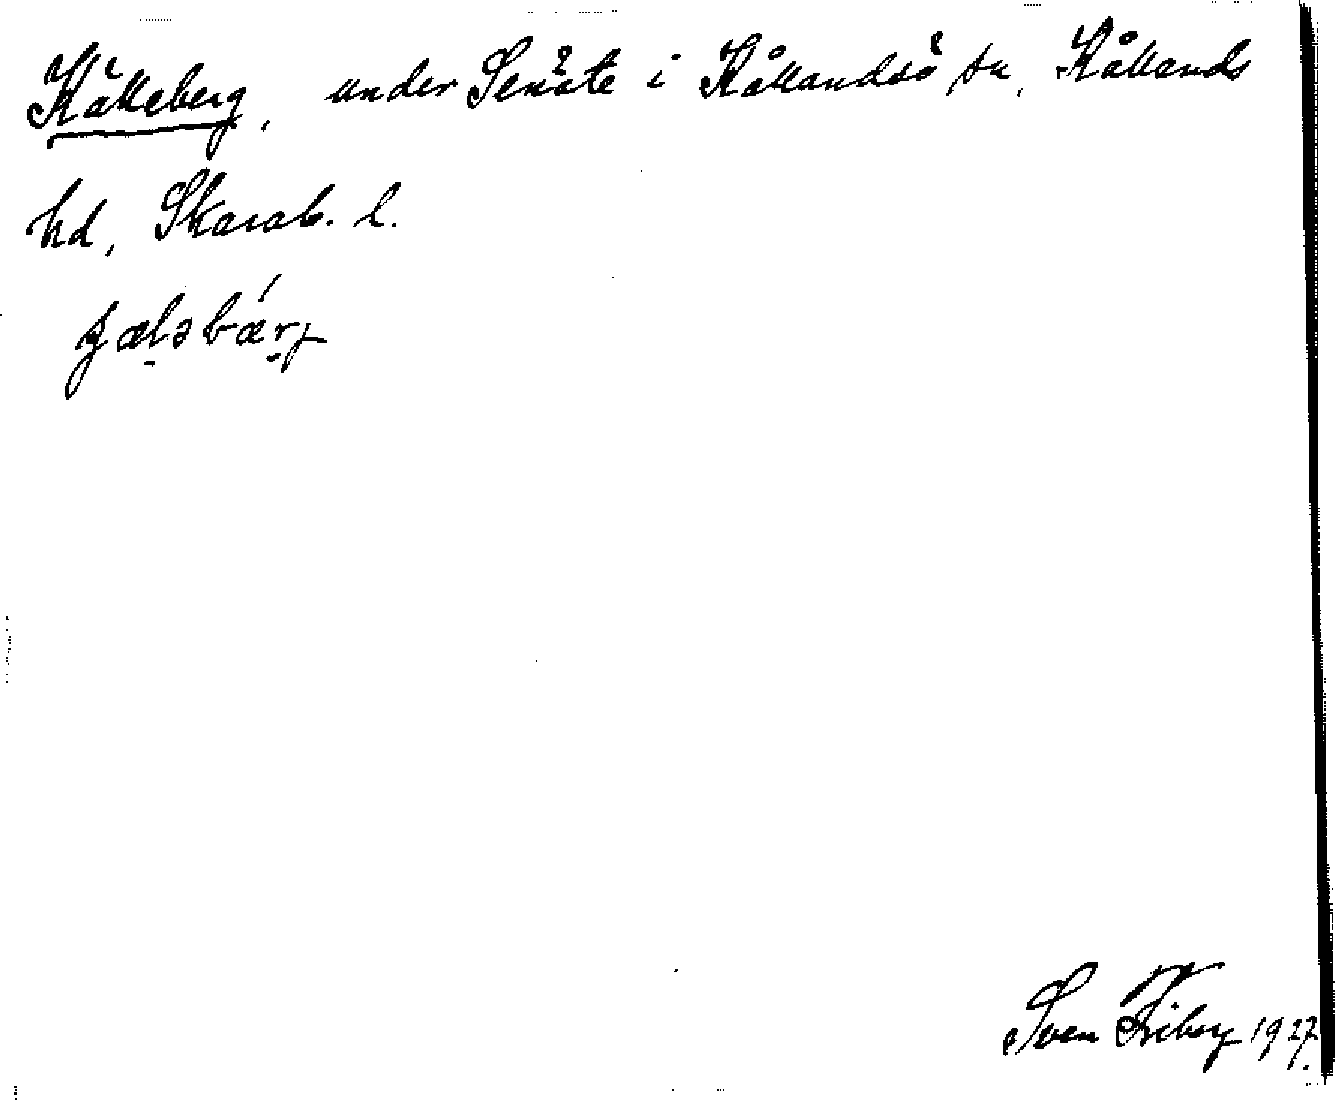 Källeberg, under Senäte i Kållandsö sn, Kållands
hd, Skarab. l.
Sven Friberg 1927.